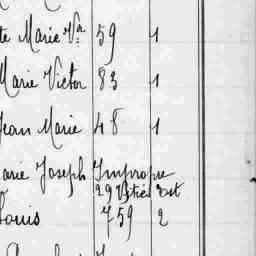 te Marie Va 59 1
Marie Victor 83 1
Jean Marie 48 1
arie Joseph Impropre
29
Louis 759 2